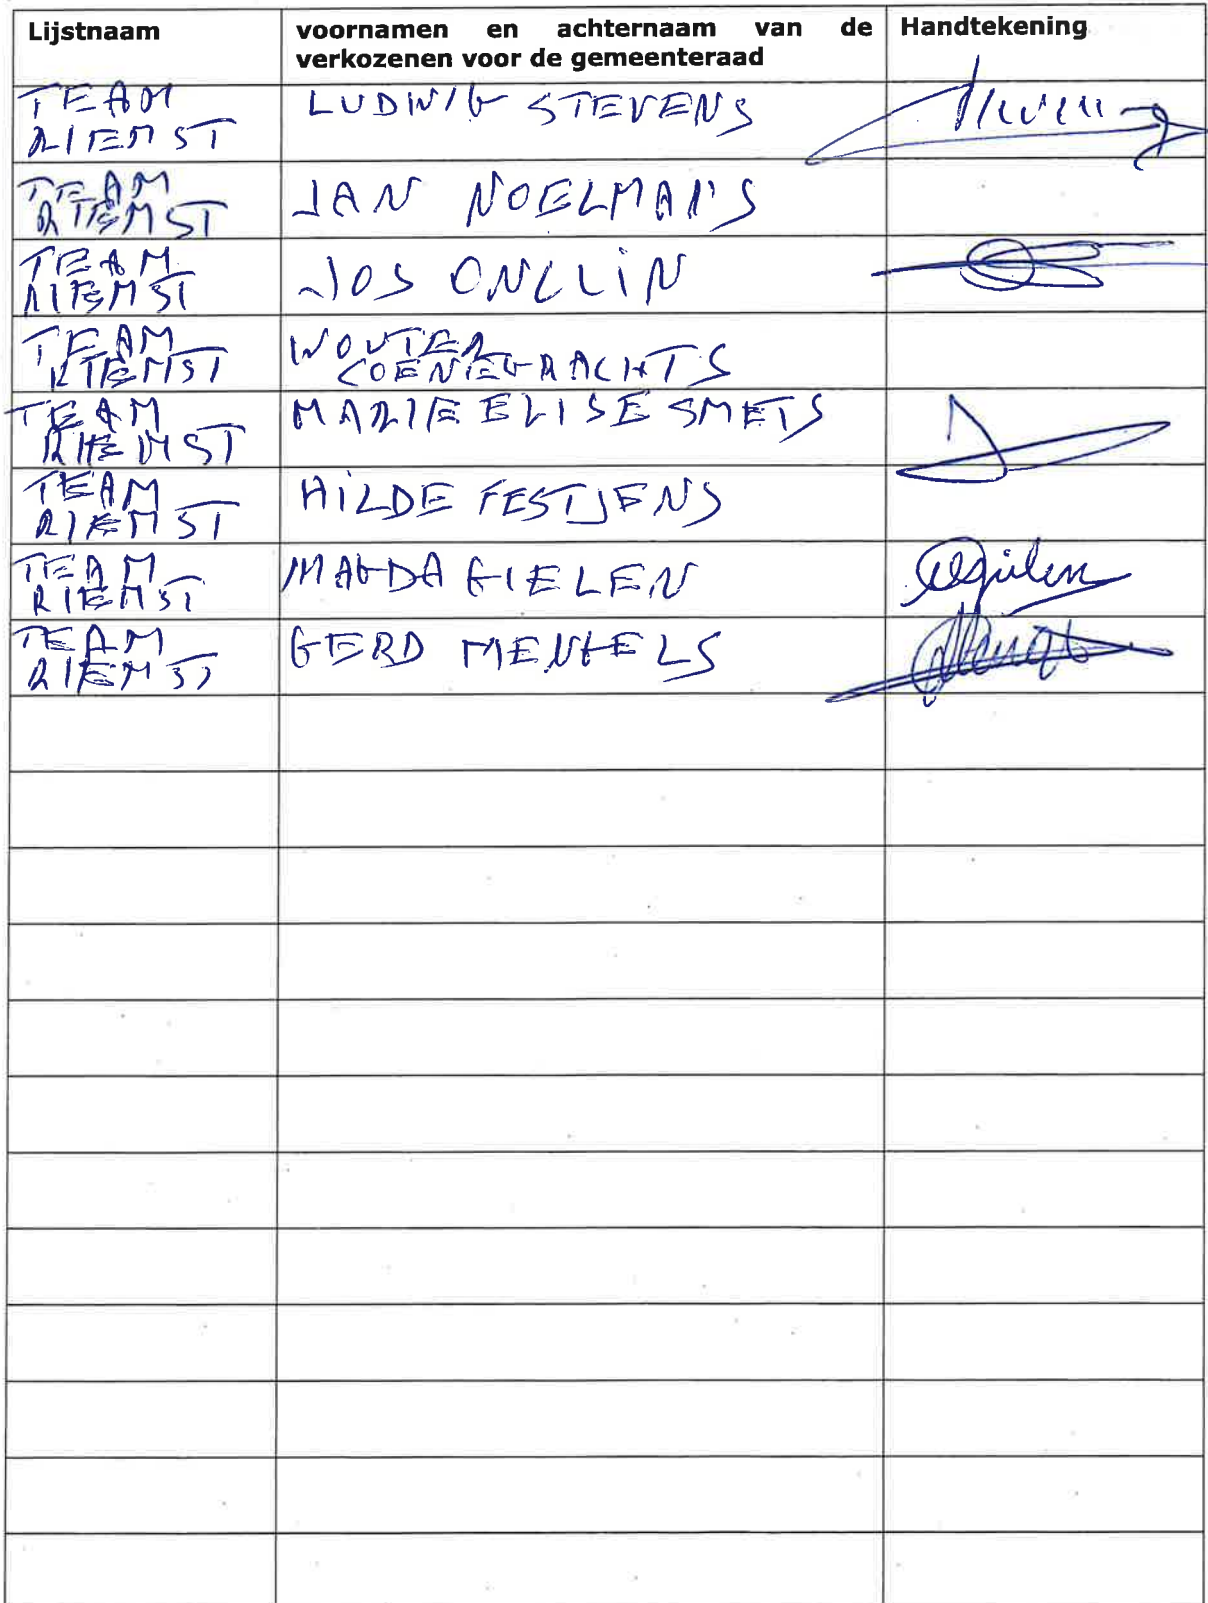 Lijstnaam
voornamen en achternaam van de
verkozenen voor de gemeenteraad
Handtekening
TEAM
RIEMST
LUDWIG STEVENS
TEAM
RIEMST
JAN NOELMANS
TEAM
RIEMST
JOS ONCLIN
TEAM
RIEMST
WOUTER
COENEGRACHTS
TEAM
RIEMST
MARIE ELISE SMETS
TEAM
RIEMST
HILDE FESTJENS
TEAM
RIEMST
MAGDA GIELEN
TEAM
RIEMST
GERD MENGELS